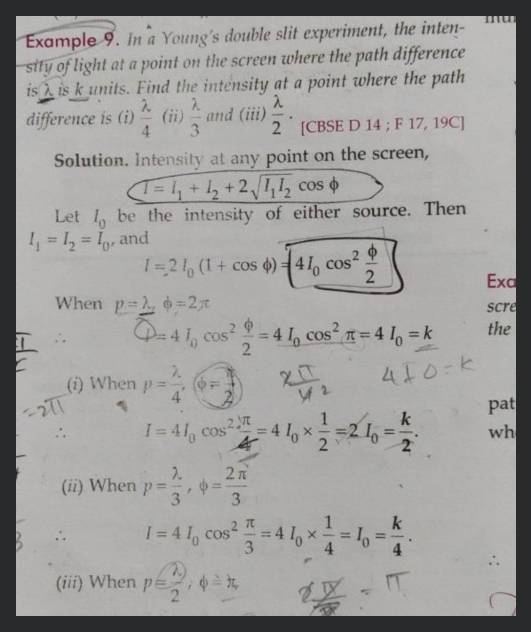 Example 9. In a Young's double slit experiment, the inten-
sity of light at a point on the screen where the path difference
is λ is k units. Find the intensity at a point where the path
difference is (i) λ/4 (ii) λ/3 and (iii) λ/2. [CBSE D 14 ; F 17, 19C]
Solution. Intensity at any point on the screen,
I = I₁ + I₂ + 2√(I₁I₂) cos φ
Let I₀ be the intensity of either source. Then
I₁ = I₂ = I₀, and
I = 2 I₀ (1 + cos φ) = 4 I₀ cos² φ/2
When p = λ, φ = 2π
∴ I = 4 I₀ cos² φ/2 = 4 I₀ cos² π = 4 I₀ = k
(i) When p = λ/4, φ = π/2
4 I 0 = K
= 2π
∴ I = 4 I₀ cos² π/4 = 4 I₀ × 1/2 = 2 I₀ = k/2.
(ii) When p = λ/3, φ = 2π/3
∴ I = 4 I₀ cos² π/3 = 4 I₀ × 1/4 = I₀ = k/4.
(iii) When p = λ/2, φ = π
= π
Exa
scre
the
pat
wh
∴